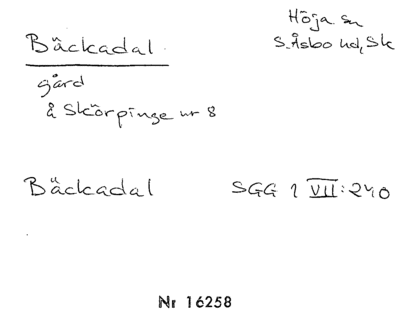 Höja sn
Bäckadal
S.Åsbo hd, Sk
gård
å Skörpinge nr 8
Bäckadal SGG 1 VII: 240
Nr 16258